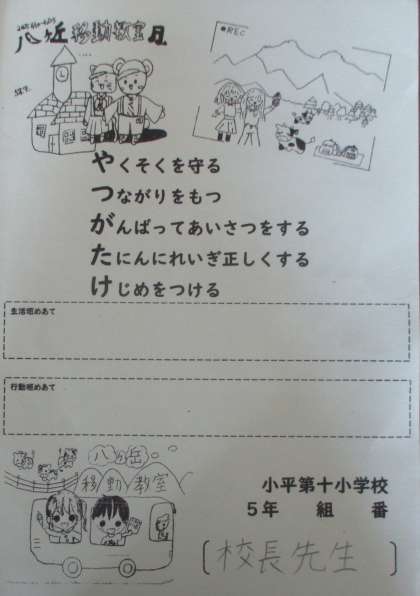 八ヶ岳移動教室
REC
やくそくを守る
つながりをもつ
がんばってあいさつをする
たにんにれいぎ正しくする
けじめをつける
生活班めあて
行動班めあて
八ヶ岳
移動教室
小平第十小学校
5年 組 番
校長先生